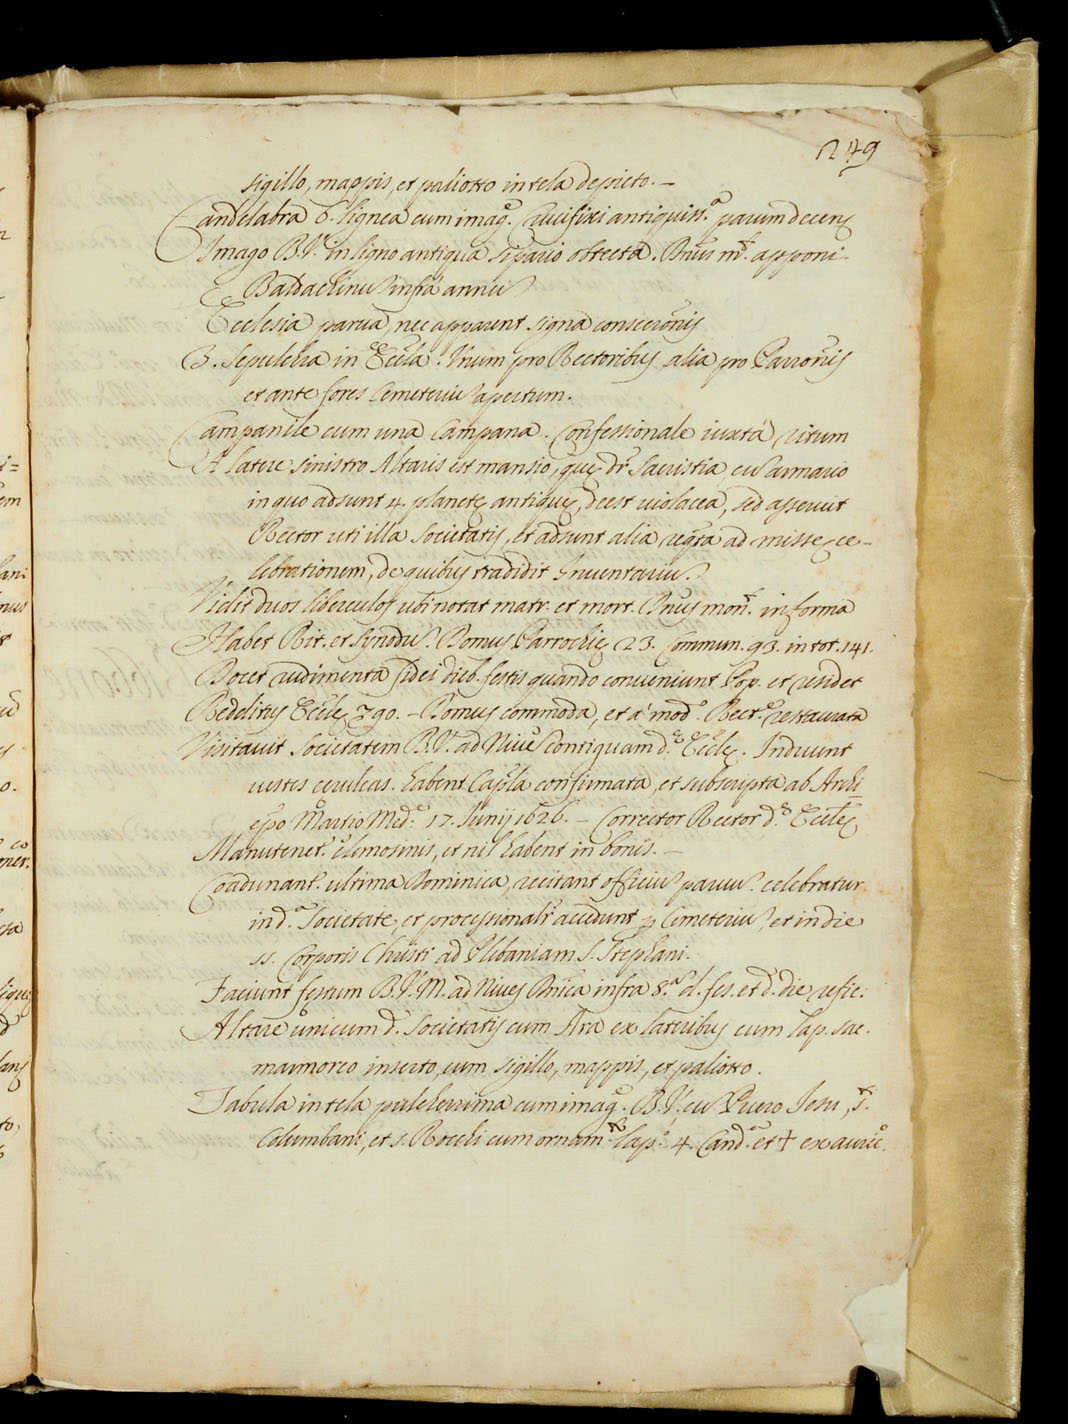 249
sigillo, mappis, et paliotto in tela depicto. –
Candelabra 6. lignea cum imag.e Crucifixi antiquiss.a parum decenș
Imago B.V. in ligno antiqua sipario obtecta. Dn̄us m.t apponi
Baldachinū infrà annū
Ecclesia parua, nec apparent signa consecrōnis
3. sepulchra in Ecc̄la. Vnum pro Rectoribus, alia pro Parronis
et ante fores cemeteriū apertum.
Campanile cum una Campana. Confessionale iuxtà ritum
A latere sinistro Altaris est mansio, quę dr̄ sacristia, cū armario
in quo adsunt 4. planetę antiquę, deest uiolacea, sed asseruit
Rector uti illa societatis, et adsunt alia reqta ad missę ce-
lebrationem, de quibus tradidit Inuentariū.
Vidit duos liberculos ubi notat matr. et mort. Dn̄us mon.t in forma
Habet Rit. et synodū. Domus Parrochię 23. Commun. 93. in tot. 141.
Docet rudimenta fidei dieb. festis quando conueniunt Pop. et residet
Redditus Eccłę 790. – Domus commoda, et à mod.o Rect.e restaurata
Visitauit societatem B.V. ad Niuē contiguam d.e Eccłę. Induunt
uestes ceruleas. habent Cap̄la confirmata, et subscripta ab Archi=
ep̄o Martio Med.o 17. Iunij 1626. – Corrector Rector d.e Eccłę
Manutenet.r elimosinis, et nil habent in bonis. –
Coadunant.r ultima Dominica, recitant officiū paruū. celebratur
in d.a societate, et processionalr̄ accedunt ꝑ Cemeteriū, et in die
ss. Corporis Christi ad Plibaniam S. Stephani.
Faciunt festum B.V.M. ad Niues Dn̄ica infra 8.a d. fes. et d. die refic.
Altare unicum d. societatis cum Ara ex lateribus cum lap. sac.
marmoreo inserto, cum sigillo, mappis, et paliotto.
Tabula in tela pulcherrima cum imag.e B.V. cū Puero Iesu, s.
Columbani, et s. Rocchi cum ornam.to lap.o 4. Cand.a et ✝ ex auric.o